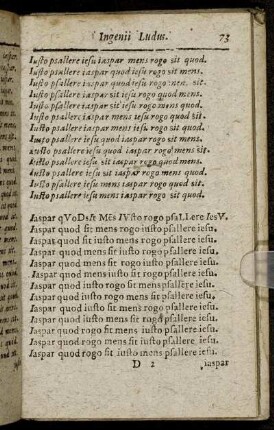 Ingenii Ludus. 73
Iusto psallere iesu iaspar mens rogo sit quod.
Iusto psallere iaspar quod iesu rogo sit mens.
Iusto psallere iaspar quod iesu rogo mens sit.
Iusto psallere iaspar sit iesu rogo mens quod.
Iusto psallere iaspar mens iesu rogo quod sit.
Iusto psallere iaspar mens iesu rogo sit quod.
Iusto psallere iesu quod iaspar rogo mens sit.
Iusto psallere iesu quod iaspar rogo sit mens.
Iusto psallere iesu sit iaspar rogo mens quod.
Iusto psallere iesu sit iaspar rogo quod mens.
Iusto psallere iesu mens iaspar rogo quod sit.
Iusto psallere iesu mens iaspar rogo sit quod.
Iaspar qVoD sIt MẽS IVsto rogo psaLLere IesV.
Iaspar quod sit mens rogo iusto psallere iesu.
Iaspar quod sit iusto mens rogo psallere iesu.
Iaspar quod sit iusto rogo mens psallere iesu.
Iaspar quod mens sit rogo iusto psallere iesu.
Iaspar quod mens iusto sit rogo psallere iesu.
Iaspar quod iusto rogo sit mens psallere iesu.
Iaspar quod iusto rogo mens sit psallere iesu.
Iaspar quod iusto mens sit rogo psallere iesu.
Iaspar quod rogo sit mens iusto psallere iesu.
Iaspar quod rogo sit iusto mens psallere iesu.
D 2 iaspar